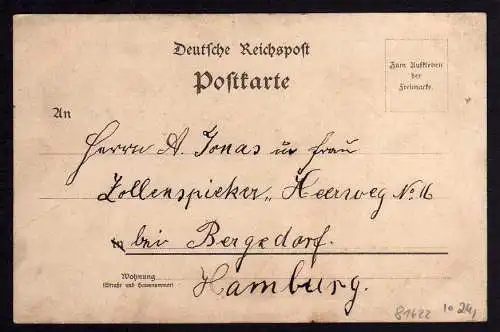 Deutsche Reichspost
Postkarte
Zum Aufkleben
der
Freimarke.
An
Herrn A. Jonas u. Frau
Zollenspieker, Heerweg No 16
bei Bergedorf.
Wohnung
(Straße und Hausnummer)
Hamburg.
81422 10 24,